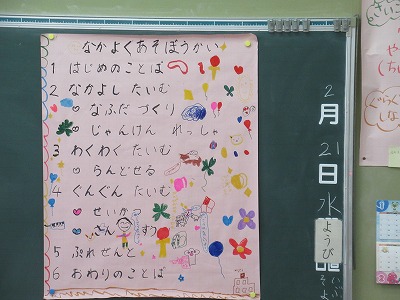 なかよくあそぼうかい
1 はじめのことば
2 なかよし たいむ
なふだ づくり
じゃんけん れっしゃ
3 わくわく たいむ
らんどせる
4 ぐんぐん たいむ
せいかつ
さんすう
5 ぷれぜんと
6 おわりのことば
2
月
21
日
水
ようび